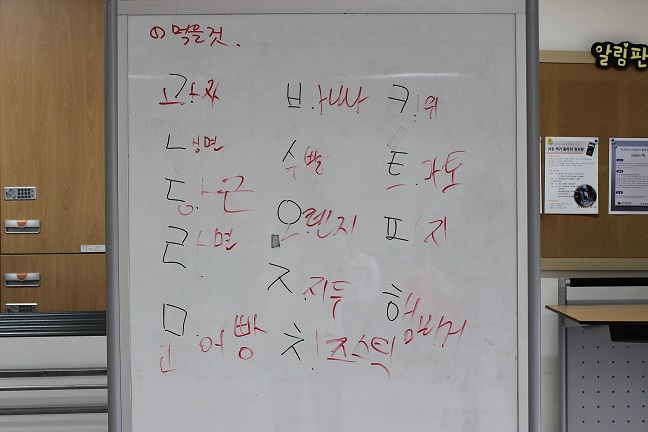 먹을것.
과자
냉면
당근
라면
어빵
바나나
수박
오렌지
자두
치즈스틱
키위
토마토
피자
햄버거
알림판